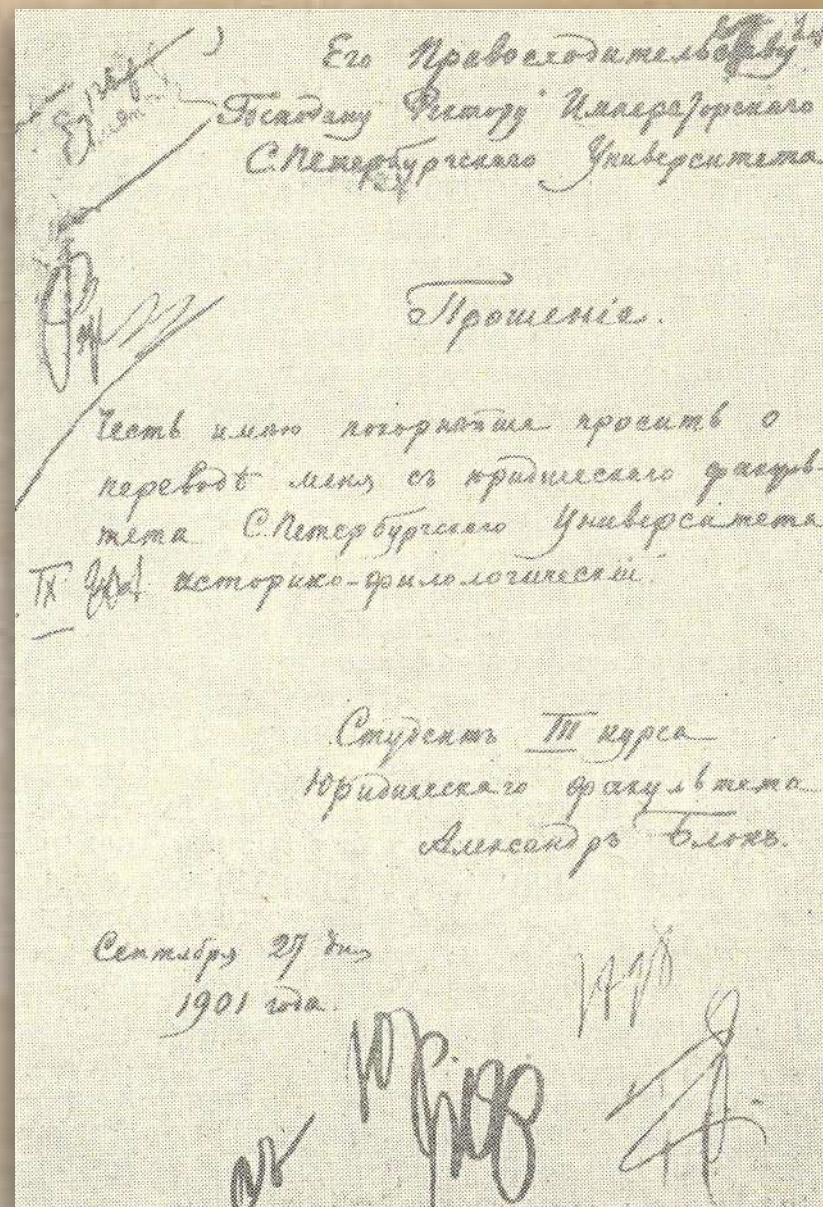 Его Превосходительству
Господину Ректору Императорскаго
С.Петербургскаго Университета
Прошеніе.
Честь имѣю покорнѣйше просить о
переводѣ меня съ юридическаго факуль-
тета С.Петербургскаго Университета
на историко-филологическій.
Студентъ III курса
Юридическаго факультета
Александръ Блокъ.
Сентября 27 дня
1901 года.